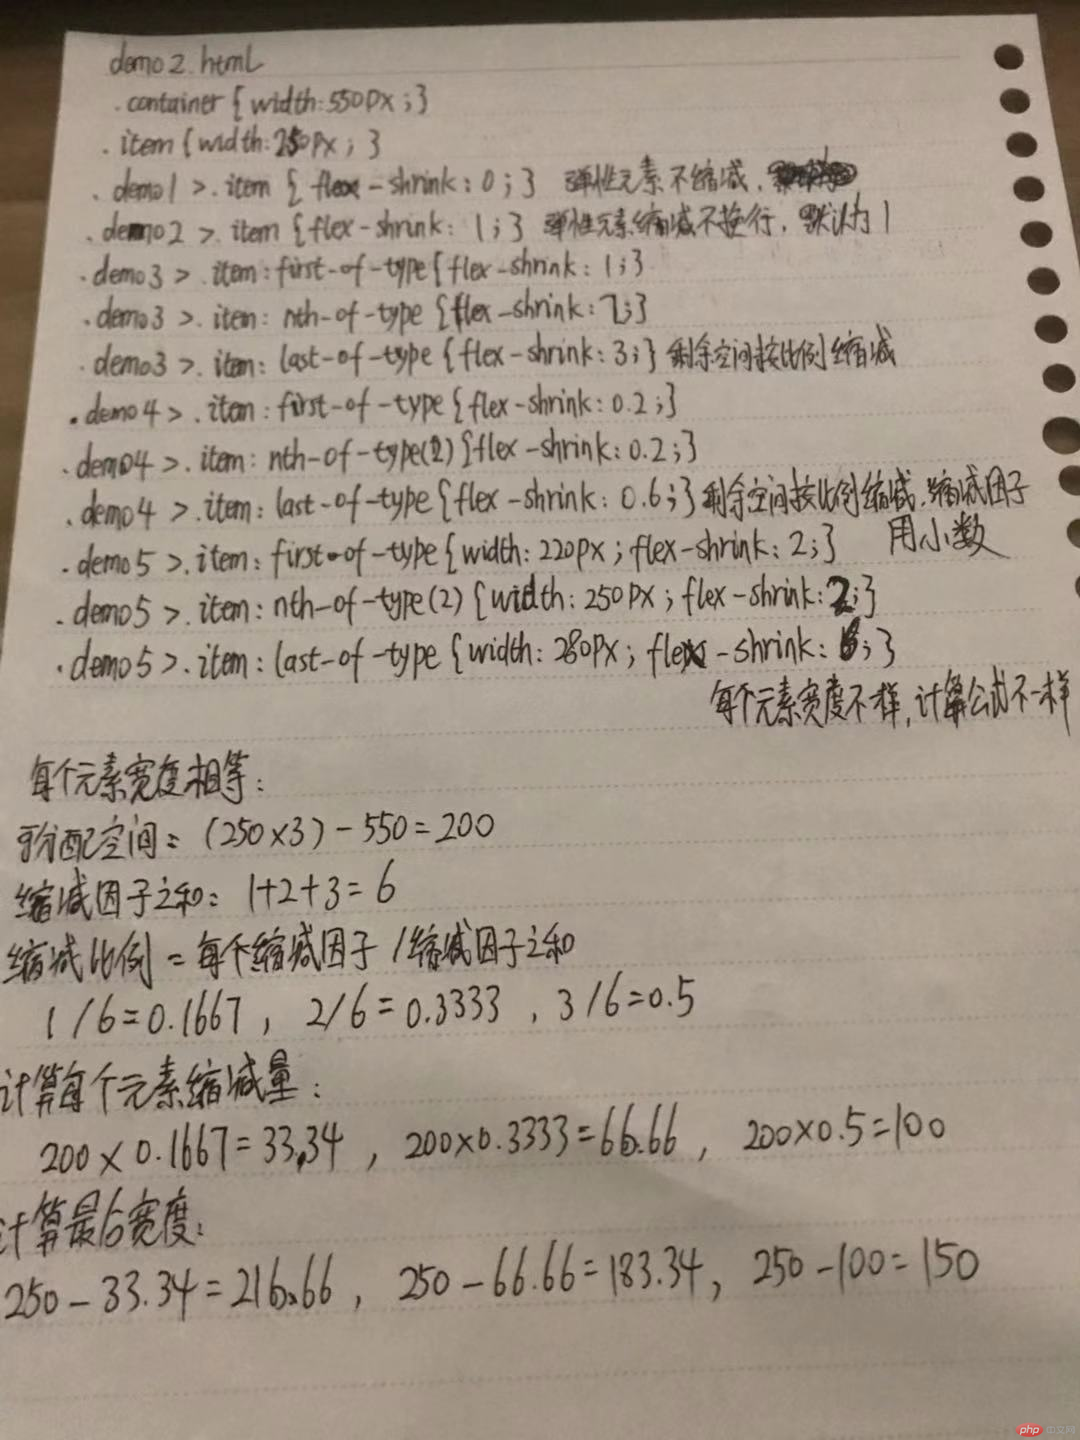 demo2.html
.container{width:550px;}
.item{width:250px;}
.demo1>.item{flex-shrink:0;} 弹性元素不缩减,
.demo2>.item{flex-shrink:1;} 弹性元素缩减不换行,默认为1
.demo3>.item:first-of-type{flex-shrink:1;}
.demo3>.item:nth-of-type{flex-shrink:2;}
.demo3>.item:last-of-type{flex-shrink:3;} 剩余空间按比例缩减
.demo4>.item:first-of-type{flex-shrink:0.2;}
.demo4>.item:nth-of-type(2){flex-shrink:0.2;}
.demo4>.item:last-of-type{flex-shrink:0.6;} 剩余空间按比例缩减,缩减因子
用小数
.demo5>.item:first-of-type{width:220px;flex-shrink:2;}
.demo5>.item:nth-of-type(2){width:250px;flex-shrink:2;}
.demo5>.item:last-of-type{width:280px;flex-shrink: ;}
每个元素宽度不一样,计算公式不一样
每个元素宽度相等:
可分配空间=(250×3)-550=200
缩减因子之和:1+2+3=6
缩减比例=每个缩减因子/缩减因子之和
1/6=0.1667, 2/6=0.3333, 3/6=0.5
计算每个元素缩减量:
200×0.1667=33.34, 200×0.3333=66.66, 200×0.5=100
计算最后宽度:
250-33.34=216.66, 250-66.66=183.34, 250-100=150
php 中文网